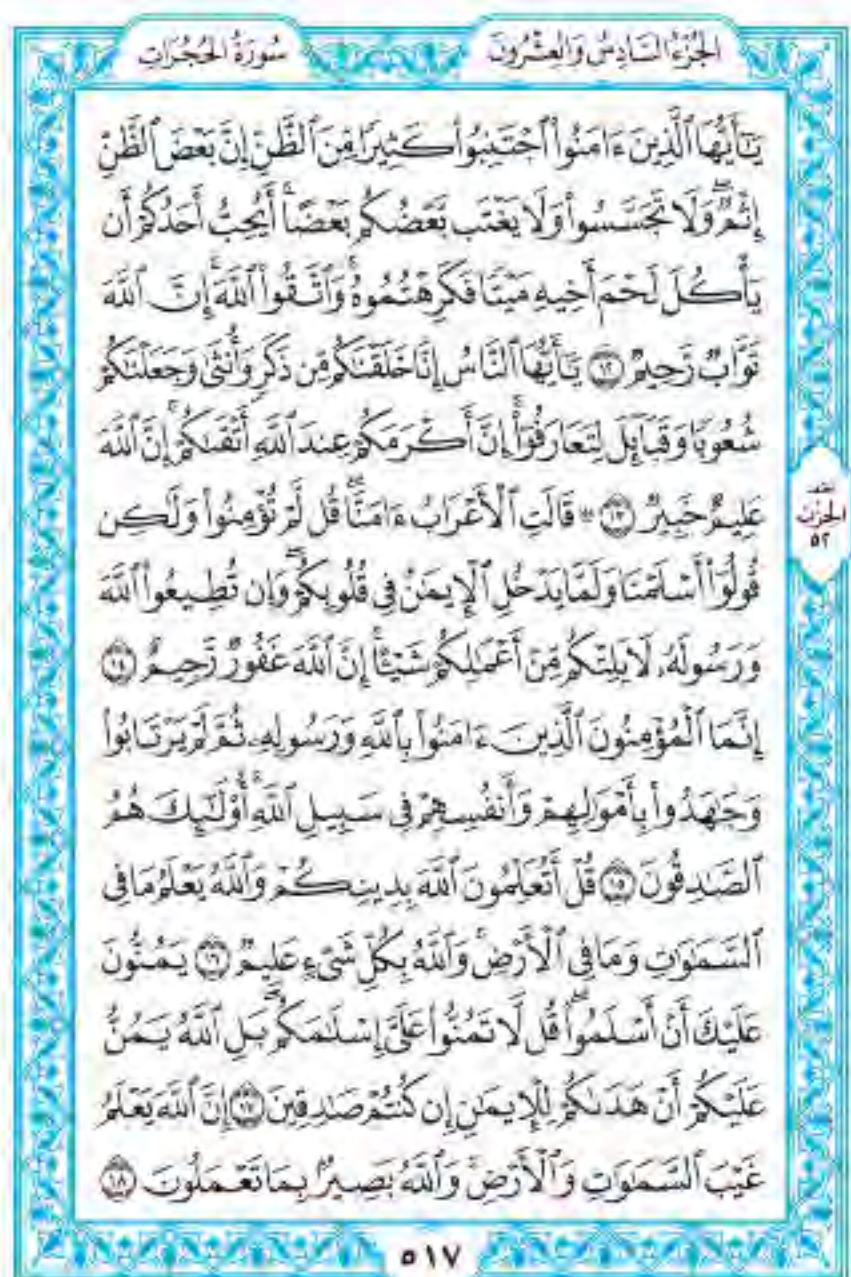 الجُزْءُ السَّادِسُ وَالعِشْرُونَ
سُورَةُ الحُجُرَاتِ
يَٰٓأَيُّهَا ٱلَّذِينَ ءَامَنُوا۟ ٱجْتَنِبُوا۟ كَثِيرًا مِّنَ ٱلظَّنِّ إِنَّ بَعْضَ ٱلظَّنِّ
إِثْمٌ ۖ وَلَا تَجَسَّسُوا۟ وَلَا يَغْتَب بَّعْضُكُم بَعْضًا ۚ أَيُحِبُّ أَحَدُكُمْ أَن
يَأْكُلَ لَحْمَ أَخِيهِ مَيْتًا فَكَرِهْتُمُوهُ ۚ وَٱتَّقُوا۟ ٱللَّهَ ۚ إِنَّ ٱللَّهَ
تَوَّابٌ رَّحِيمٌ ١٢ يَٰٓأَيُّهَا ٱلنَّاسُ إِنَّا خَلَقْنَٰكُم مِّن ذَكَرٍ وَأُنثَىٰ وَجَعَلْنَٰكُمْ
شُعُوبًا وَقَبَآئِلَ لِتَعَارَفُوٓا۟ ۚ إِنَّ أَكْرَمَكُمْ عِندَ ٱللَّهِ أَتْقَىٰكُمْ ۚ إِنَّ ٱللَّهَ
عَلِيمٌ خَبِيرٌ ١٣ ۞ قَالَتِ ٱلْأَعْرَابُ ءَامَنَّا ۖ قُل لَّمْ تُؤْمِنُوا۟ وَلَٰكِن
قُولُوٓا۟ أَسْلَمْنَا وَلَمَّا يَدْخُلِ ٱلْإِيمَٰنُ فِى قُلُوبِكُمْ ۖ وَإِن تُطِيعُوا۟ ٱللَّهَ
وَرَسُولَهُۥ لَا يَلِتْكُم مِّنْ أَعْمَٰلِكُمْ شَيْـًٔا ۚ إِنَّ ٱللَّهَ غَفُورٌ رَّحِيمٌ ١٤
إِنَّمَا ٱلْمُؤْمِنُونَ ٱلَّذِينَ ءَامَنُوا۟ بِٱللَّهِ وَرَسُولِهِۦ ثُمَّ لَمْ يَرْتَابُوا۟
وَجَٰهَدُوا۟ بِأَمْوَٰلِهِمْ وَأَنفُسِهِمْ فِى سَبِيلِ ٱللَّهِ ۚ أُو۟لَٰٓئِكَ هُمُ
ٱلصَّٰدِقُونَ ١٥ قُلْ أَتُعَلِّمُونَ ٱللَّهَ بِدِينِكُمْ وَٱللَّهُ يَعْلَمُ مَا فِى
ٱلسَّمَٰوَٰتِ وَمَا فِى ٱلْأَرْضِ ۚ وَٱللَّهُ بِكُلِّ شَىْءٍ عَلِيمٌ ١٦ يَمُنُّونَ
عَلَيْكَ أَنْ أَسْلَمُوا۟ ۖ قُل لَّا تَمُنُّوا۟ عَلَىَّ إِسْلَٰمَكُم ۖ بَلِ ٱللَّهُ يَمُنُّ
عَلَيْكُمْ أَنْ هَدَىٰكُمْ لِلْإِيمَٰنِ إِن كُنتُمْ صَٰدِقِينَ ١٧ إِنَّ ٱللَّهَ يَعْلَمُ
غَيْبَ ٱلسَّمَٰوَٰتِ وَٱلْأَرْضِ ۚ وَٱللَّهُ بَصِيرٌۢ بِمَا تَعْمَلُونَ ١٨
الحِزْب
٥٢
٥١٧